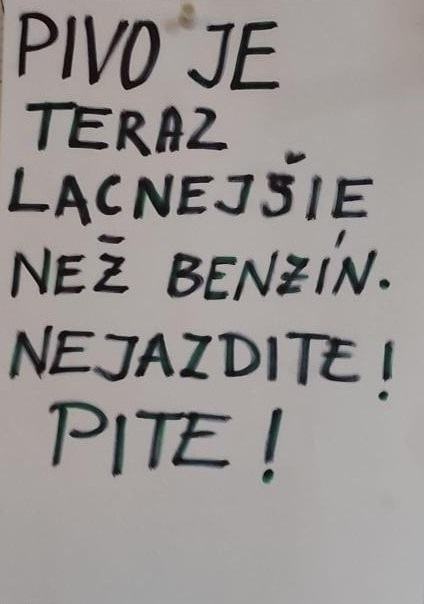 PIVO JE
TERAZ
LACNEJŠIE
NEŽ BENZÍN.
NEJAZDITE!
PITE!